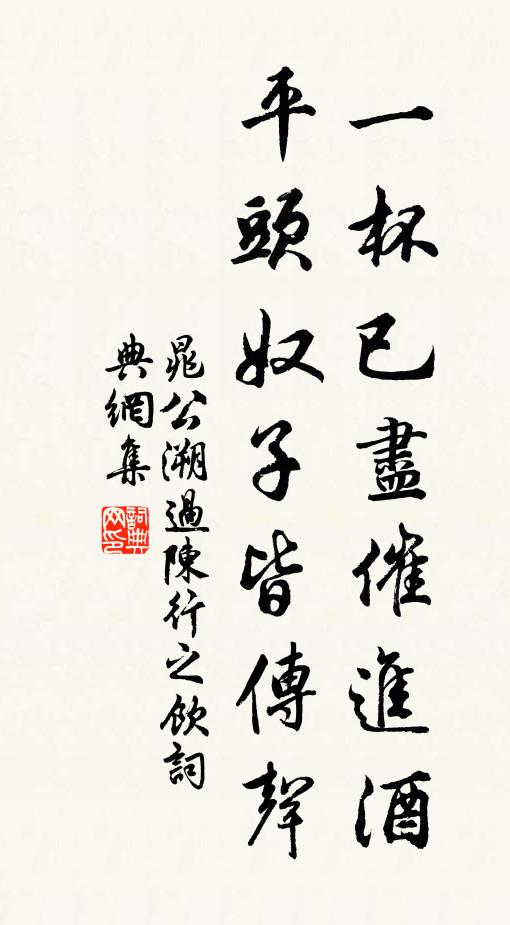 一杯已盡催進酒
平頭奴子皆傳聲
晁公溯過陳行之飲詞
典網集
詞典網印